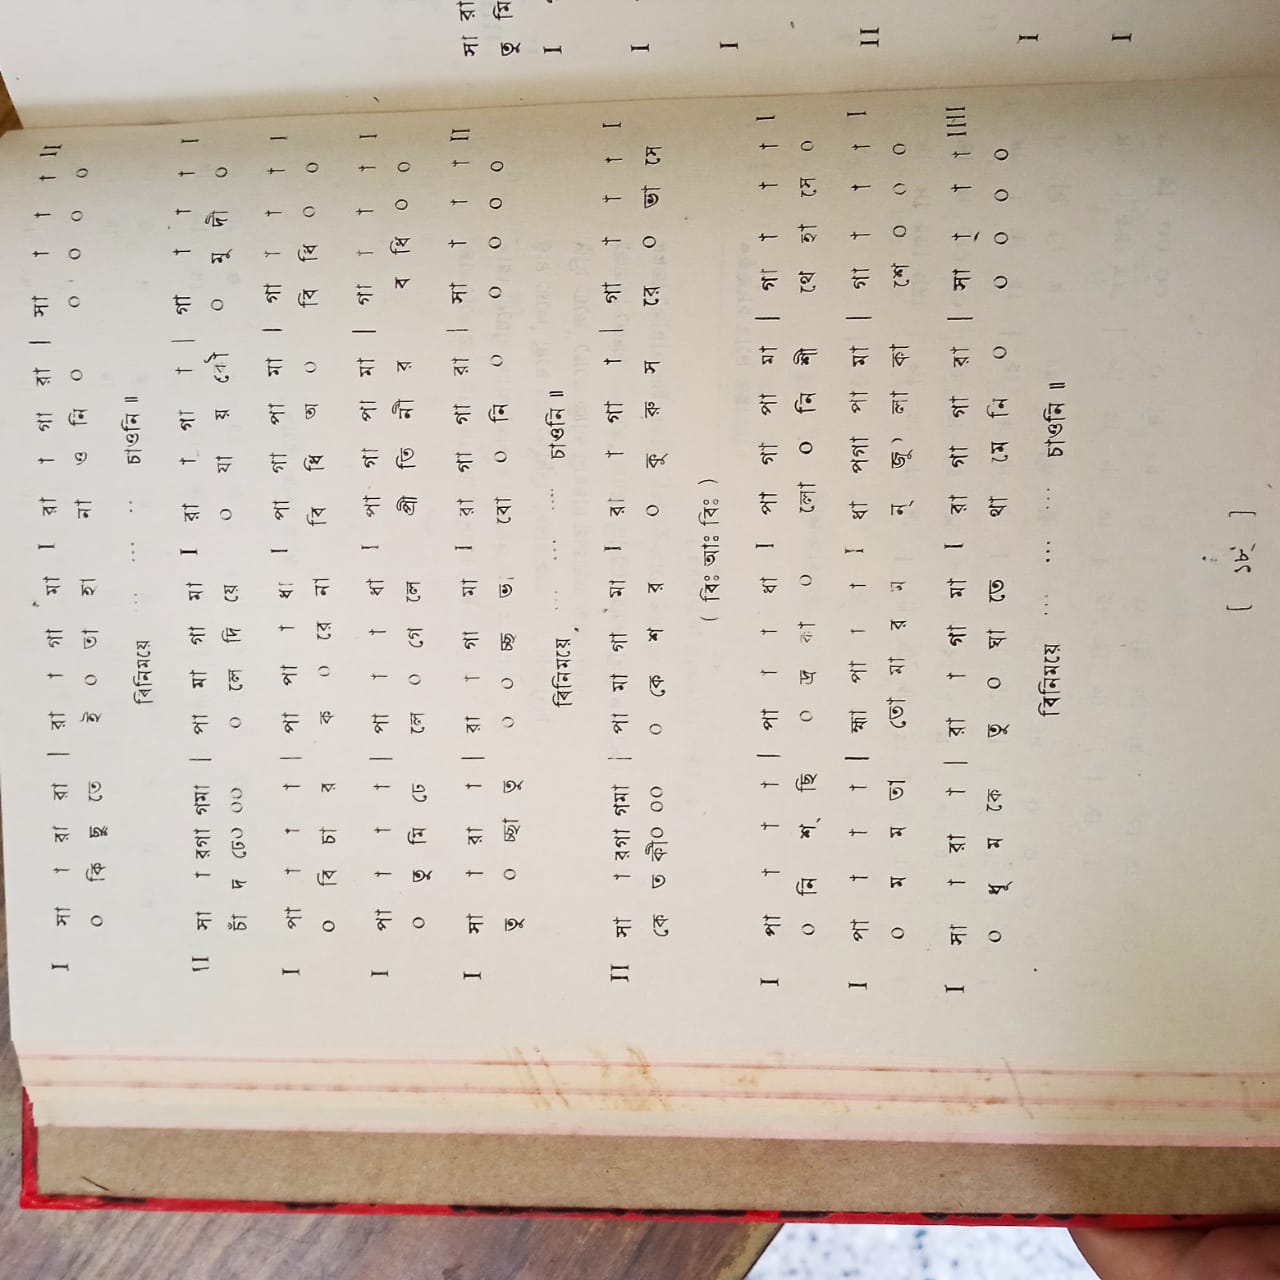 I সা া রা রা | রা া গা মা I রা া গা রা | সা া া া II
০ কি ছু তে ই ০ তা হা না ও নি ০ ০ ০ ০ ০
বিনিময়ে ... .. চাওনি॥
II সা া রগা গমা | পা মা গা মা I রা া গা া | গা া া া I
চাঁ দ ঢে০ ০০ ০ লে দি য়ে ০ যা য় কৌ ০ মু দী ০
I পা া া া | পা পা া ধা I পা গা পা মা | গা া া া I
০ বি চা র ক ০ রে না বি ধি অ ০ বি ধি ০ ০
I পা া া া | পা া া ধা I পা গা পা মা | গা া া া I
০ তু মি ঢে লে ০ গে লে প্রী তি নী র ব ধি ০ ০
I সা া রা া | রা া গা মা I রা গা গা রা | সা া া া II
তু ০ চ্ছা তু ০ ০ চ্ছ ত বো ০ নি ০ ০ ০ ০ ০
বিনিময়ে ... .... চাওনি॥
II সা া রগা গমা | পা মা গা মা I রা া গা া | গা া া া I
কে ত কী০ ০০ ০ কে শ র ০ কু রু স রে ০ ভা সে
( বিঃ আঃ বিঃ )
I পা া া া | পা া া ধা I পা গা পা মা | গা া া া I
০ নি শ্ ছি ০ দ্র কা ০ লো ০ নি শী থে হা সে ০
I পা া া া | হ্মা পা া া I ধা পগা পা মা | গা া া া I
০ ম ম তা তো মা র ম ন্ জু ০ লা কা শে ০ ০ ০
I সা া রা া | রা া গা মা I রা গা গা রা | সা া া া IIII
০ ধূ ম কে তু ০ ঘা তে থা মে নি ০ ০ ০ ০ ০
বিনিময়ে ... ... ... চাওনি॥
[ ১৮ ]
সা রা
তু মি
I
I
I
II
I
I